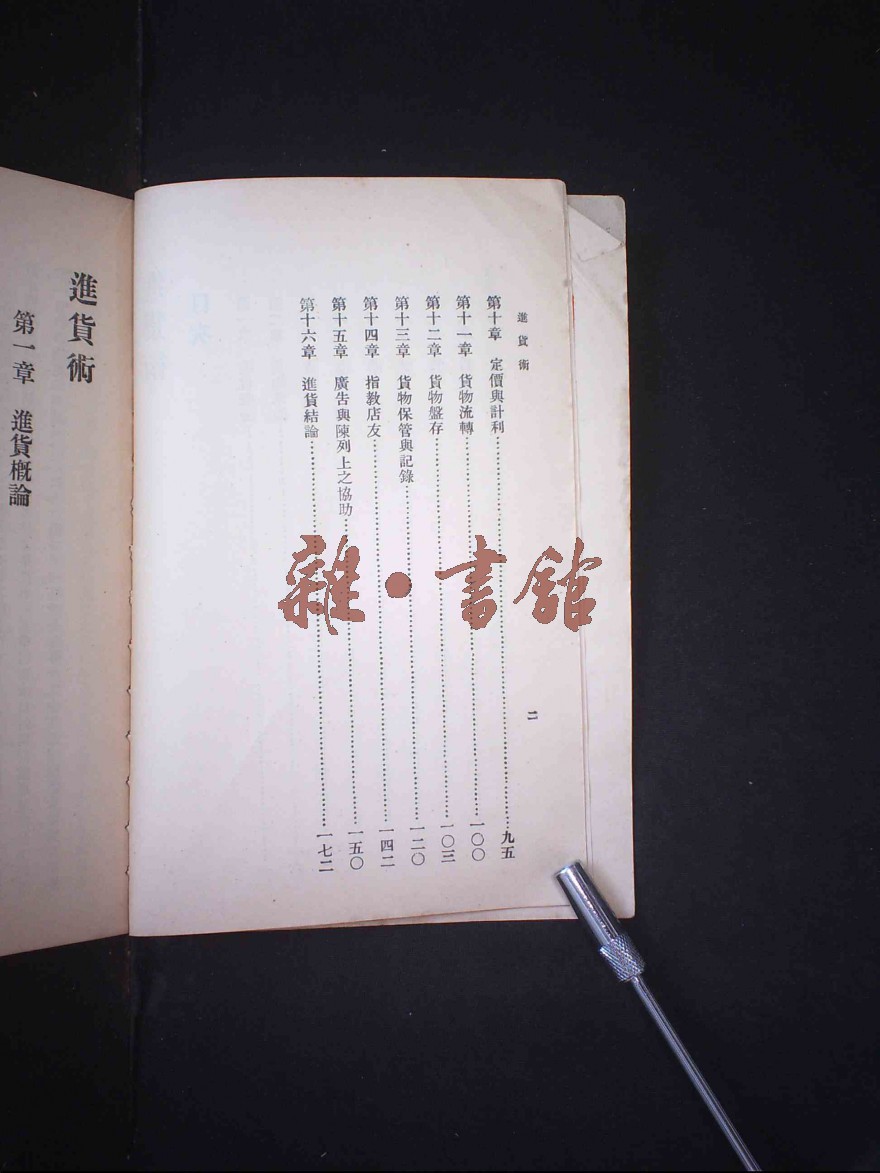 進貨術
第十章　定價與計利……九五
第十一章　貨物流轉……一〇〇
第十二章　貨物盤存……一〇三
第十三章　貨物保管與記錄……一二〇
第十四章　指教店友……一四二
第十五章　廣告與陳列上之協助……一五〇
第十六章　進貨結論……一七二
二
進貨術
第一章　進貨概論
雜・書館